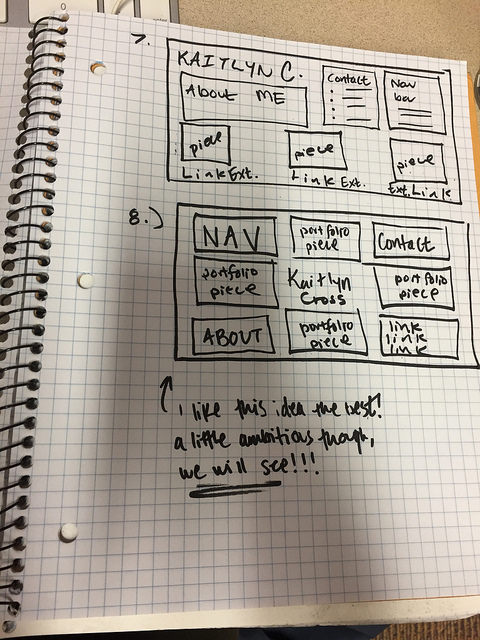 7.
KAITLYN C.
About ME
Contact
Nav
bar
piece
Link Ext.
piece
Link Ext.
piece
Ext. Link
8.)
NAV
portfolio
piece
Contact
portfolio
piece
Kaitlyn
Cross
portfolio
piece
ABOUT
portfolio
piece
link
link
link
I like this idea the best!
a little ambitious though,
we will see!!!